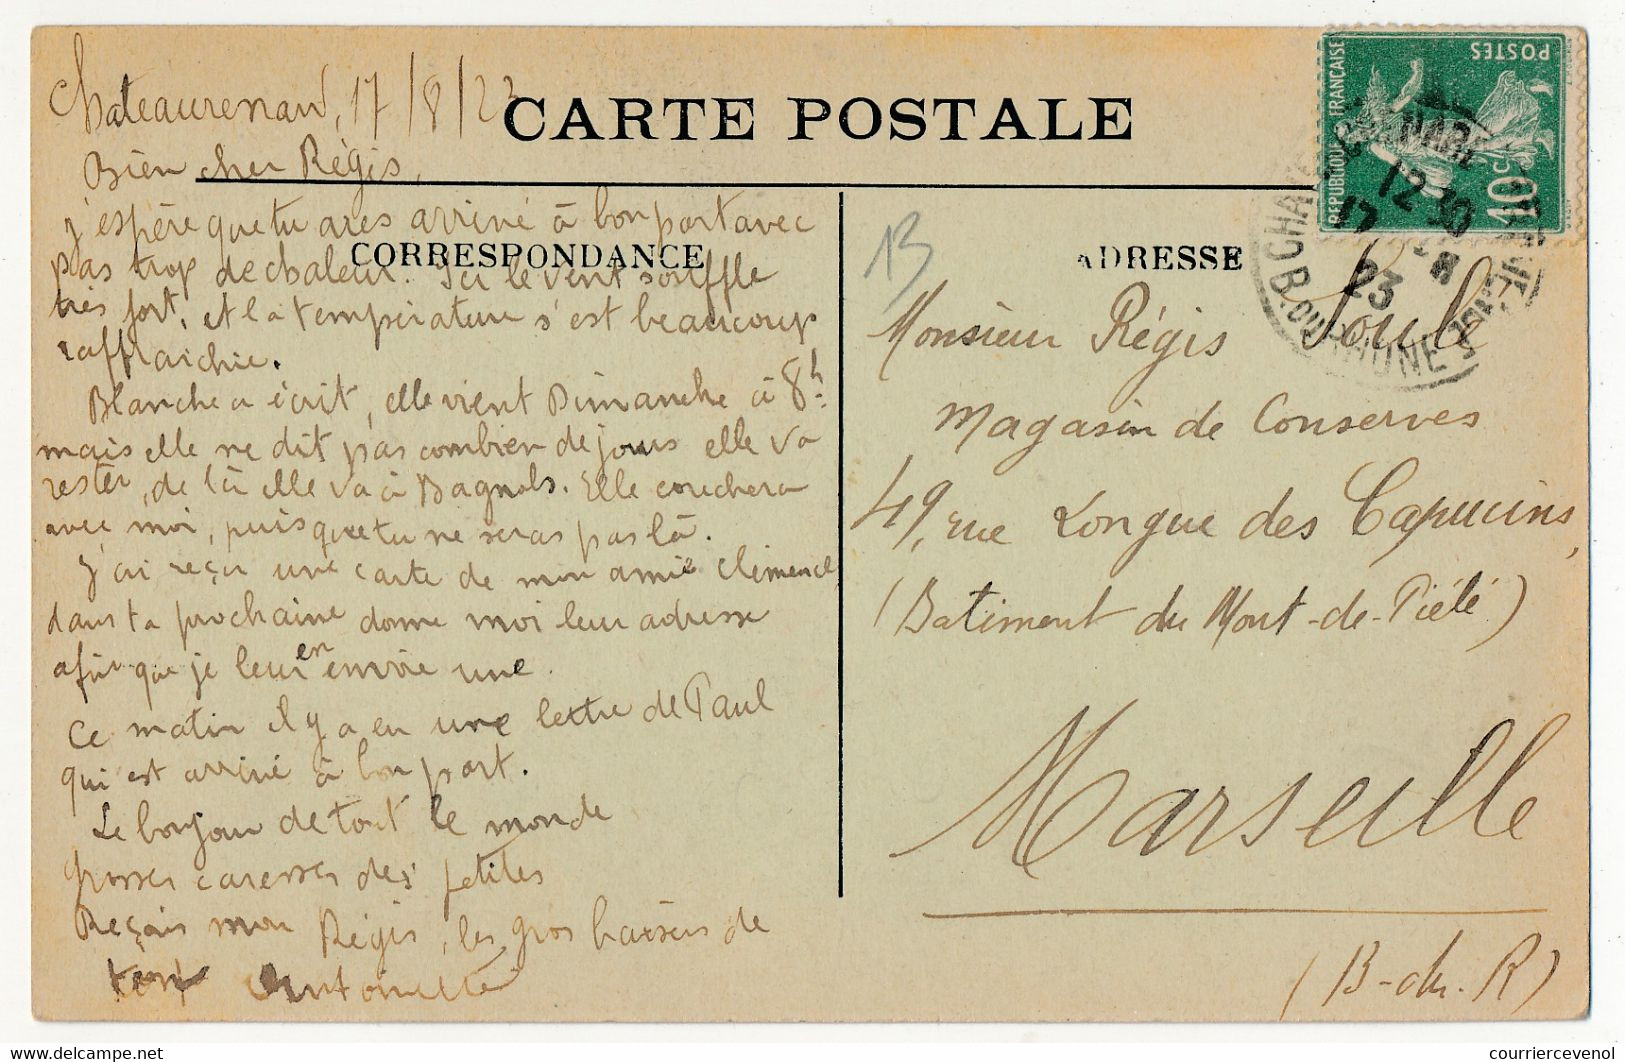 Chateaurenard, 17/8/23
CARTE POSTALE
Bien cher Régis,
j'espère que tu aies arrivé à bon port avec
CORRESPONDANCE
pas trop de chaleur. Ici le vent souffle
très fort, et la température s'est beaucoup
raffraichie.
Blanche a écrit, elle vient Dimanche à 8h.
mais elle ne dit pas combien de jours elle va
rester, de là elle va à Bagnols. Elle couchera
avec moi, puisque tu ne seras pas là.
J'ai reçu une carte de mon amie Clémence
dans ta prochaine donne moi leur adresse
afin que je leur en envoie une.
Ce matin il y a eu une lettre de Paul
qui est arrivé à bon port.
Le bonjour de tout le monde
grosses caresses des petites
Reçois mon Régis, les gros baisers de
ton Antoinette
POSTES
REPUBLIQUE FRANÇAISE
10c
12 30
17 - 8
23
B. DU RHONE
ADRESSE
13
Monsieur Régis Soulé
Magasin de Conserves
49, rue Longue des Capucins,
(Batiment du Mont-de-Piété)
Marseille
(B-du-R)
courriercevenol
www.delcampe.net